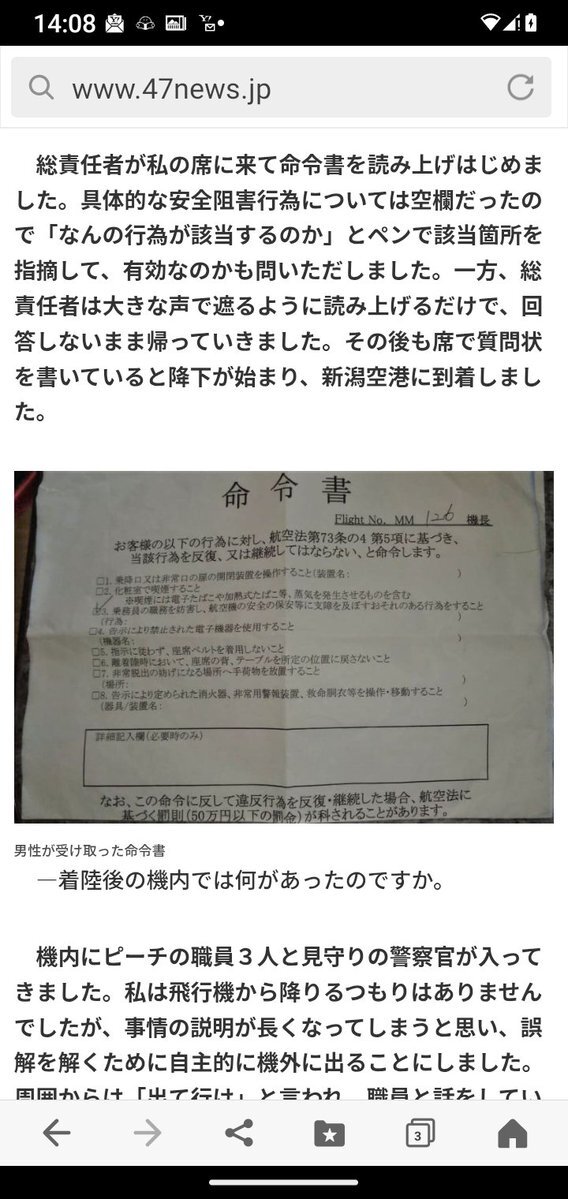 14:08
www.47news.jp
総責任者が私の席に来て命令書を読み上げはじめま
した。具体的な安全阻害行為については空欄だったの
で「なんの行為が該当するのか」とペンで該当箇所を
指摘して、有効なのかも問いただしました。一方、総
責任者は大きな声で遮るように読み上げるだけで、回
答しないまま帰っていきました。その後も席で質問状
を書いていると降下が始まり、新潟空港に到着しまし
た。
命 令 書
Flight No. MM 126 機長
お客様の以下の行為に対し、航空法第73条の4 第5項に基づき、
当該行為を反復、又は継続してはならない、と命令します。
□1. 乗降口又は非常口の扉の開閉装置を操作すること(装置名: )
□2. 化粧室で喫煙すること
※喫煙には電子たばこや加熱式たばこ等、蒸気を発生させるものを含む
☑3. 乗務員の職務を妨害し、航空機の安全の保安等に支障を及ぼすおそれのある行為をすること
(行為: )
□4. 告示により禁止された電子機器を使用すること
(機器名: )
□5. 指示に従わず、座席ベルトを着用しないこと
□6. 離着陸時において、座席の背、テーブルを所定の位置に戻さないこと
□7. 非常脱出の妨げになる場所へ手荷物を放置すること
(場所: )
□8. 告示により定められた消火器、非常用警報装置、救命胴衣等を操作・移動すること
(器具/装置名: )
詳細記入欄(必要時のみ)
なお、この命令に反して違反行為を反復・継続した場合、航空法に
基づく罰則(50万円以下の罰金)が科されることがあります。
男性が受け取った命令書
―着陸後の機内では何があったのですか。
機内にピーチの職員３人と見守りの警察官が入って
きました。私は飛行機から降りるつもりはありません
でしたが、事情の説明が長くなってしまうと思い、誤
解を解くために自主的に機外に出ることにしました。
周囲からは「出て行け」と言われ、職員と話をしてい
3